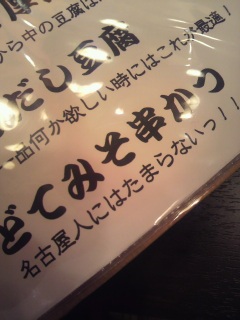 から中の豆腐は
だし豆腐
一品何か欲しい時にはこれが最適！
どてみそ串かつ
名古屋人にはたまらないっ！！